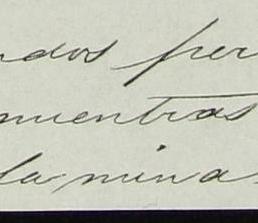 ndos per
mientras
la mina